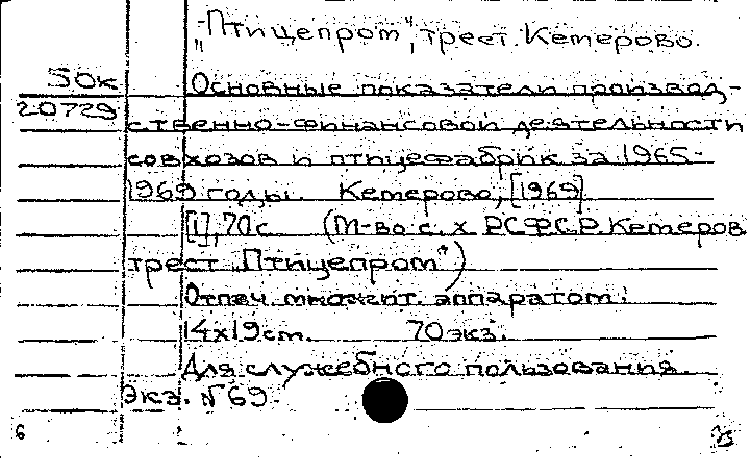 „Птицепром", трест. Кемерово.
50к Основные показатели производ-
20729 ственно-финансовой деятельности
совхозов и птицефабрик за 1965-
1969 годы. Кемерово, [1969]
[1], 70 с. (М-во с. х РСФСР. Кемеров.
трест „Птицепром")
Отпеч. множит. аппаратом.
14х19 см. 70 экз.
Для служебного пользования.
Экз. № 69
6